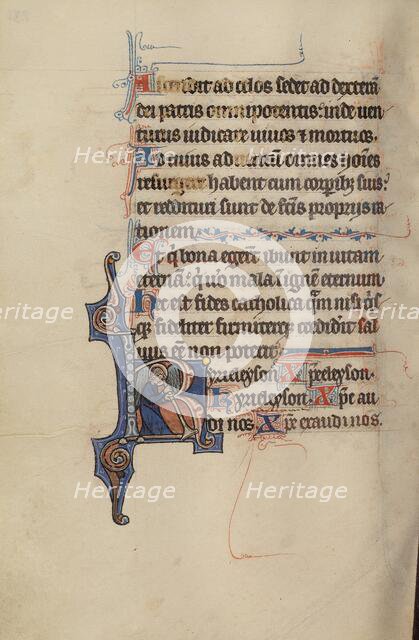 Ascendit ad celos sedet ad dexteram
dei patris omnipotentis: inde ven
turus iudicare uiuos ⁊ mortuos.
Ad cuius aduentum omnes hoies
resurgere habent cum corporibz suis:
et reddituri sunt de fcis propriis ra
tionem.
Et q̇ bona egerunt ibunt in uitam
eternā: q̇ uo mala i ignem eternum
Hec est fides catholica qm nisi q̇sq̇
qz fideliter firmiterqz crediderit sal
uus eē non poterit.
Kyrieleyson. Xp̄eleyson.
Kyrieleyson. Xp̄e au
di nos. Xp̄e exaudi nos.
Heritage Heritage
Heritage Heritage Heritage
Heritage Heritage
Heritage Heritage